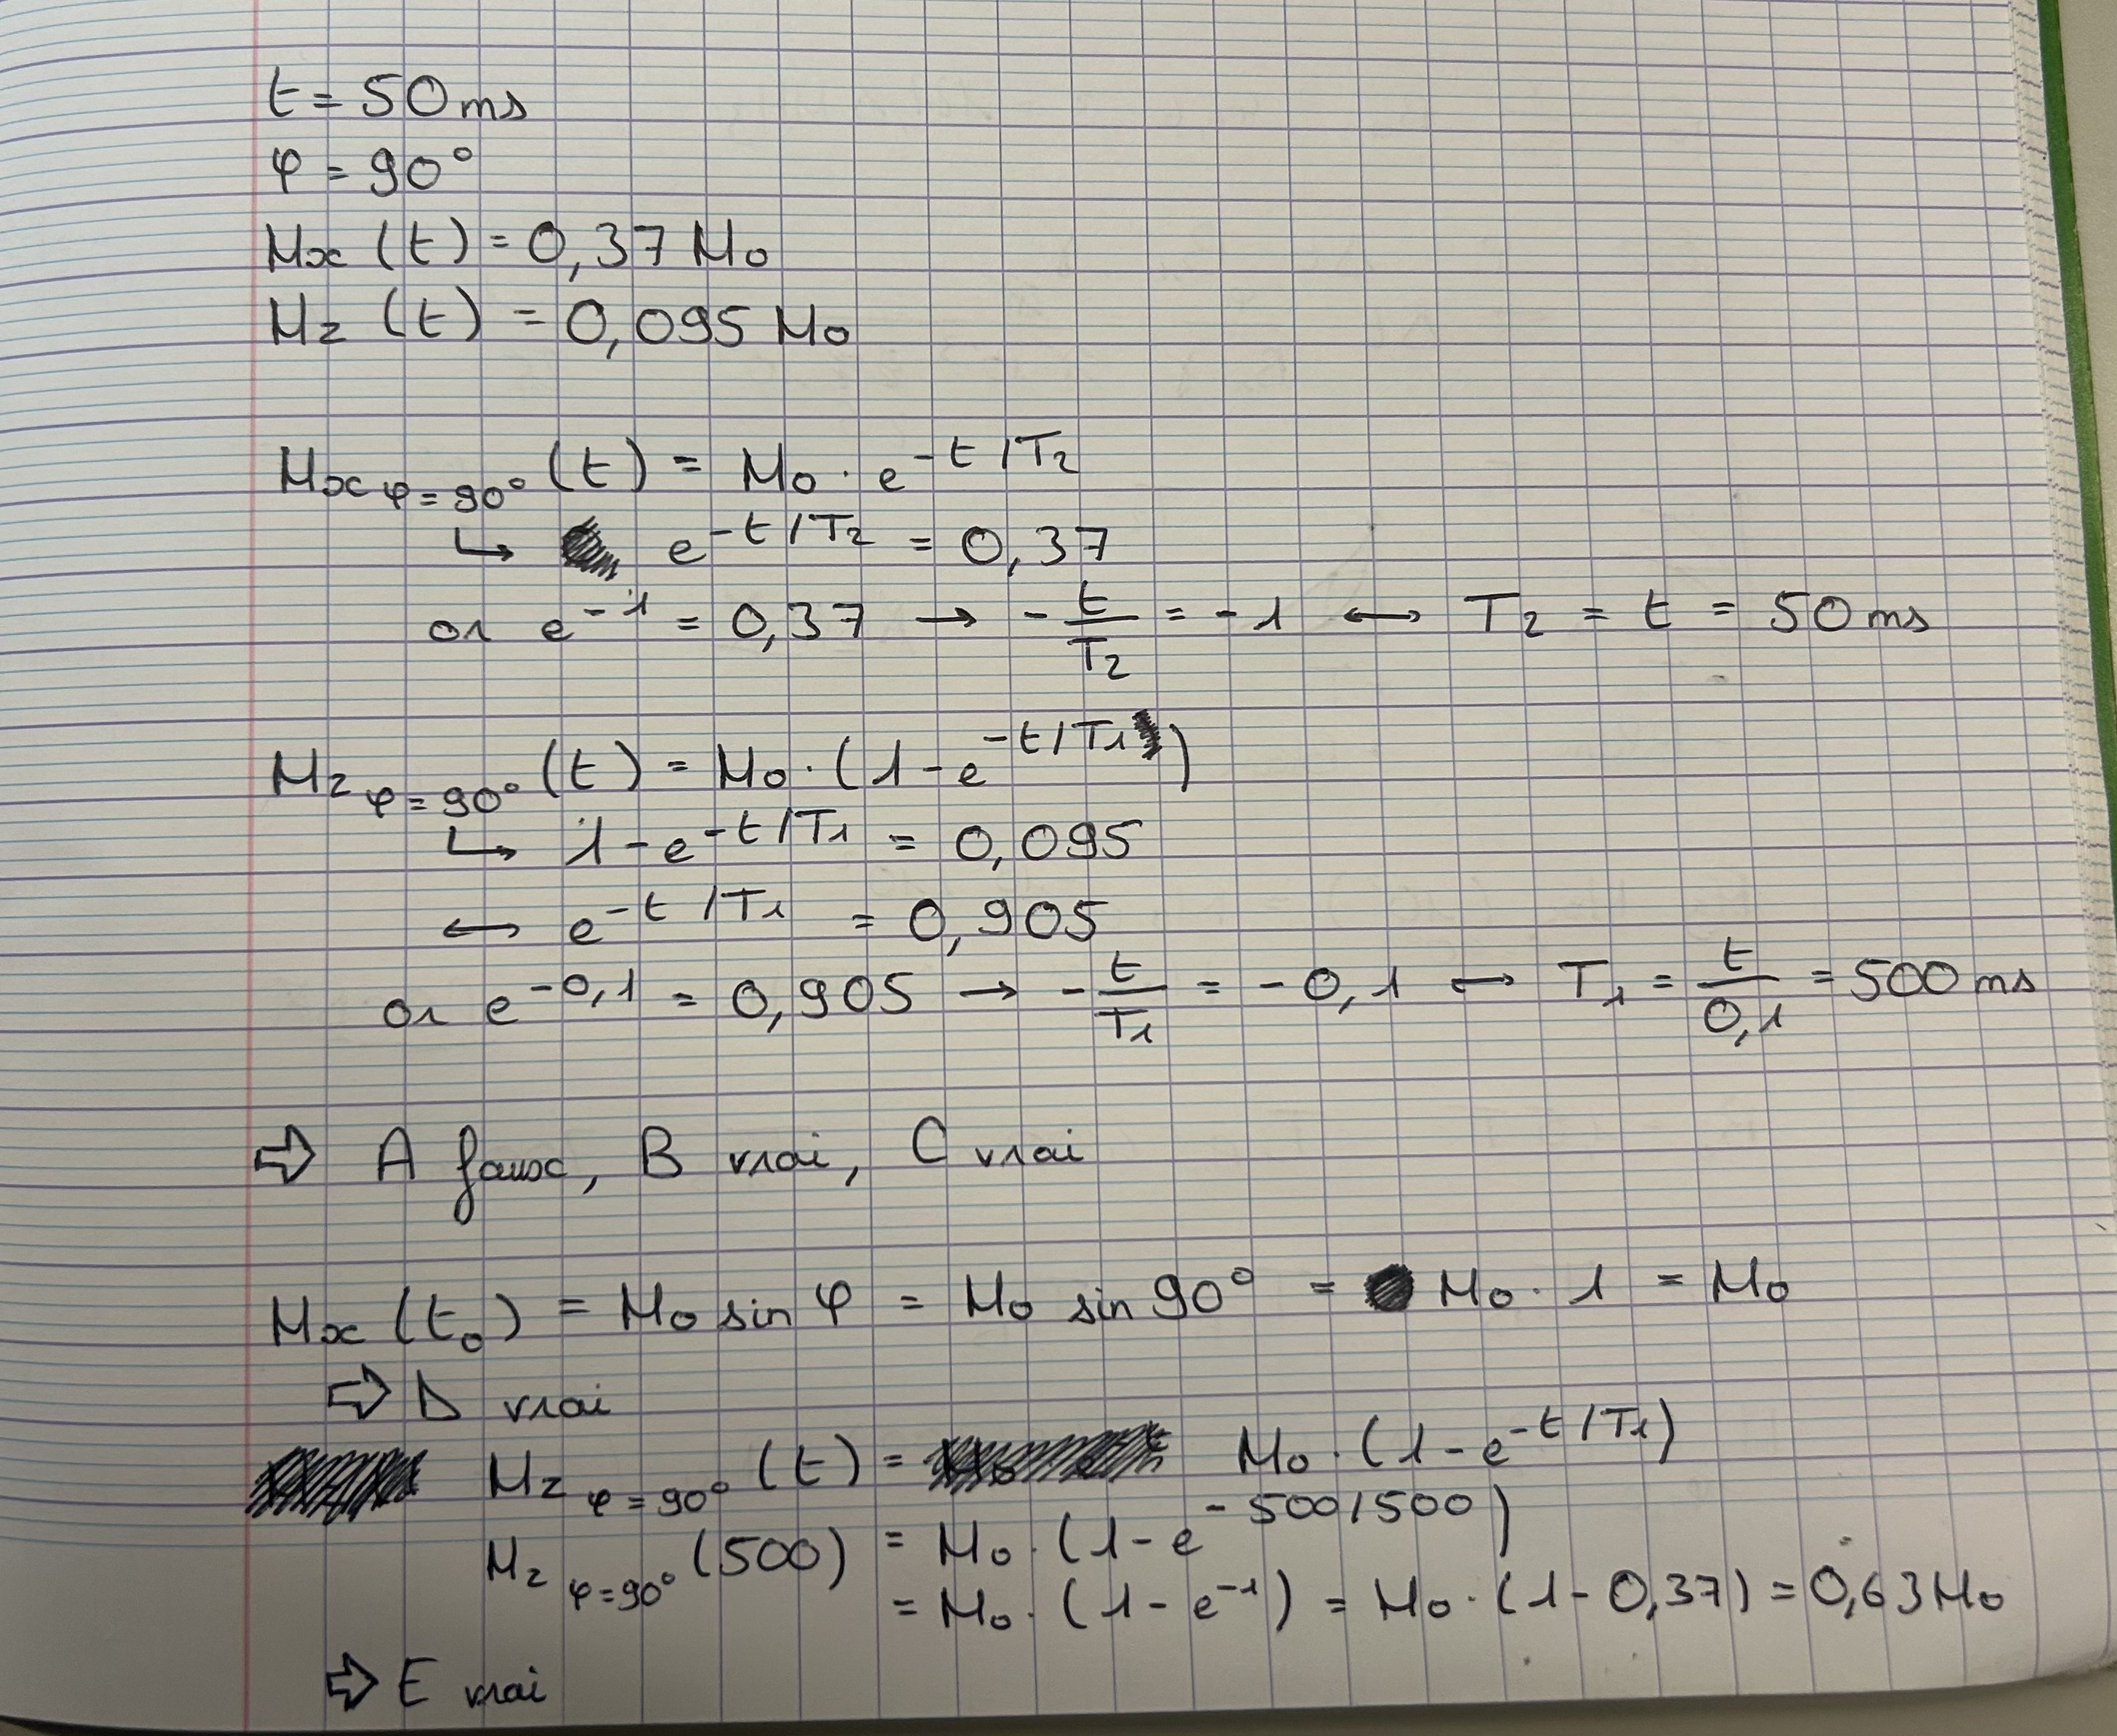 t = 50 ms
φ = 90°
Mx (t) = 0,37 M0
Mz (t) = 0,095 M0
Mx φ=90° (t) = M0 · e^-t/T2
↳ e^-t/T2 = 0,37
or e^-1 = 0,37 → - t/T2 = -1 ↔ T2 = t = 50 ms
Mz φ=90° (t) = M0 · (1 - e^-t/T1)
↳ 1 - e^-t/T1 = 0,095
↔ e^-t/T1 = 0,905
or e^-0,1 = 0,905 → - t/T1 = - 0,1 ↔ T1 = t/0,1 = 500 ms
⇨ A faux, B vrai, C vrai
Mx (t0) = M0 sin φ = M0 sin 90° = M0 · 1 = M0
⇨ D vrai
Mz φ=90° (t) = M0 · (1 - e^-t/T1)
Mz φ=90° (500) = M0 · (1 - e^-500/500)
= M0 · (1 - e^-1) = M0 · (1 - 0,37) = 0,63 M0
⇨ E vrai